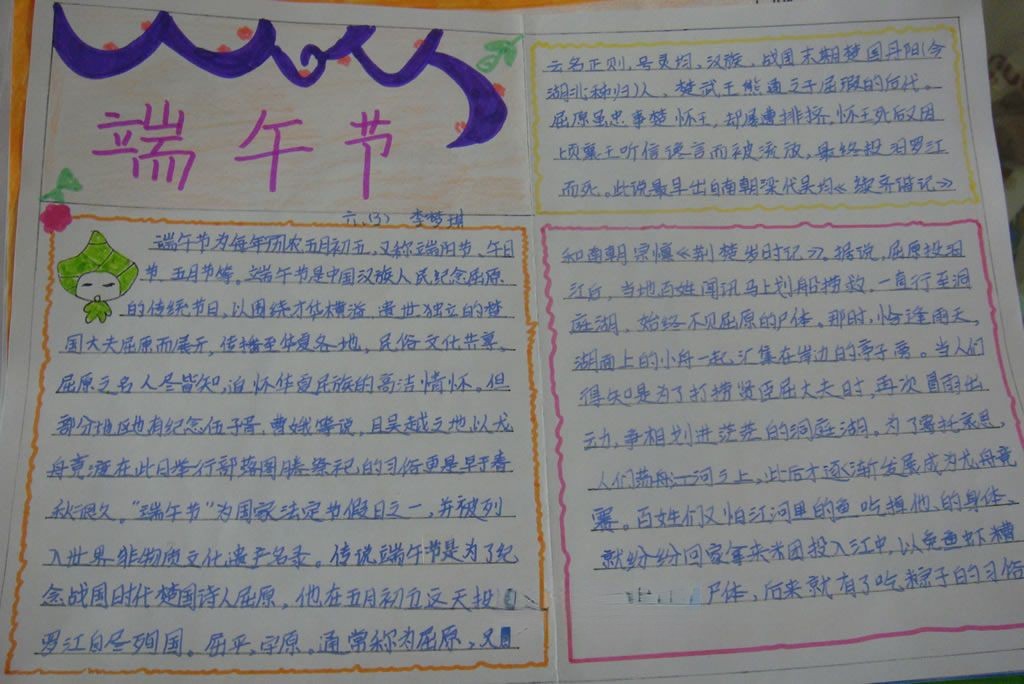 端午节
六、(3) 李梦琪
端午节为每年历农五月初五,又称端阳节、午日
节、五月节等。端午节是中国汉族人民纪念屈原
的传统节日,以围绕才华横溢、遗世独立的楚
国大夫屈原而展开,传播至华夏各地,民俗文化共享,
屈原之名人尽皆知,追怀华夏民族的高洁情怀。但
部分地区也有纪念伍子胥、曹娥等说,且吴越之地以龙
舟竟渡在此日举行部落图腾祭祀的习俗更是早于春
秋很久。“端午节”为国家法定节假日之一,并被列
入世界非物质文化遗产名录。传说端午节是为了纪
念战国时代楚国诗人屈原,他在五月初五这天投
罗江自尽殉国。屈平,字原。通常称为屈原,又
云名正则,号灵均,汉族,战国末期楚国丹阳(今
湖北秭归)人,楚武王熊通之子屈瑕的后代。
屈原虽忠事楚怀王,却屡遭排挤,怀王死后又因
顷襄王听信谗言而被流放,最终投汨罗江
而死。此说最早出自南朝梁代吴均《续齐谐记》
和南朝宗懔《荆楚岁时记》。据说,屈原投汨
江后,当地百姓闻讯马上划船捞救,一直行至洞
庭湖,始终不见屈原的尸体。那时,恰逢雨天,
湖面上的小舟一起汇集在岸边的亭子旁。当人们
得知是为了打捞贤臣屈大夫时,再次冒雨出
动,争相划进茫茫的洞庭湖。为了寄托哀思,
人们荡舟江河之上,此后才逐渐发展成为龙舟竞
赛。百姓们又怕江河里的鱼吃掉他的身体,
就纷纷回家拿来米团投入江中,以免鱼虾糟
尸体,后来就有了吃粽子的习俗